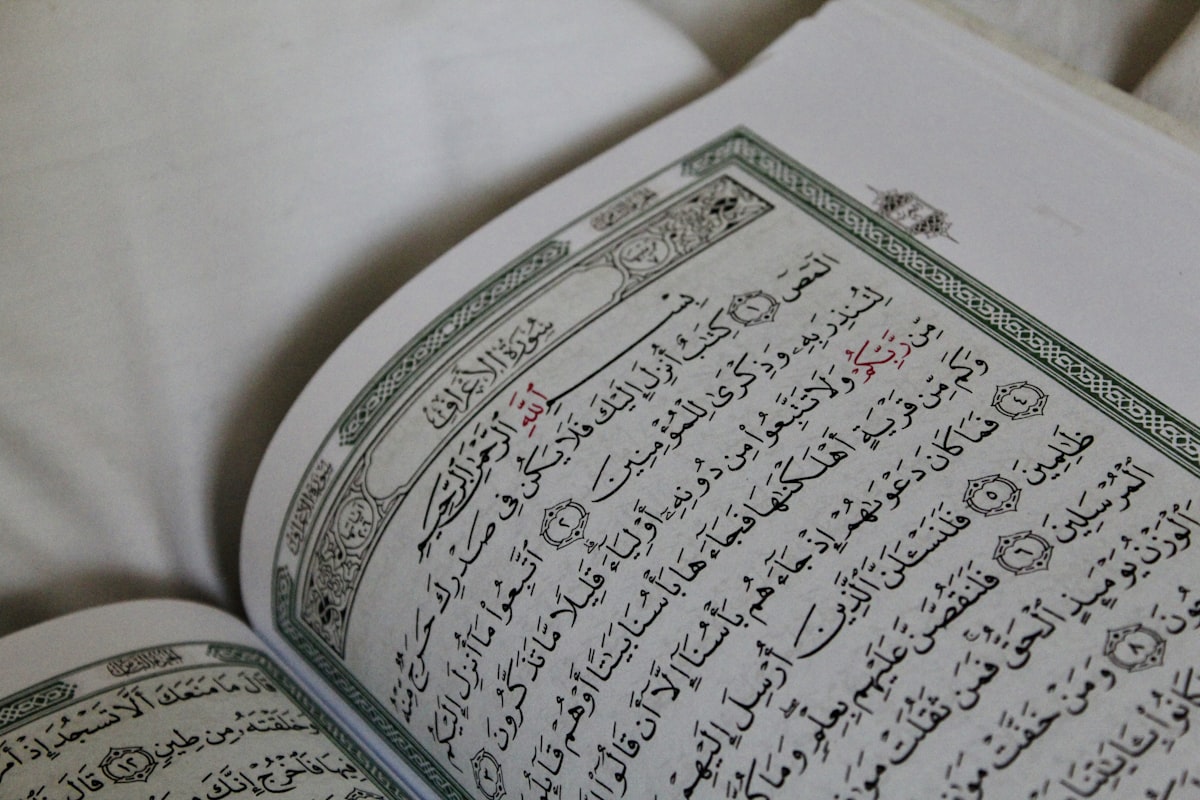 سُورَةُ الأَعْرَافِ
سُورَةُ الأَعْرَافِ
بِسْمِ ٱللَّهِ ٱلرَّحْمَٰنِ ٱلرَّحِيمِ
الٓمٓصٓ ١ كِتَٰبٌ أُنزِلَ إِلَيْكَ فَلَا يَكُن فِى صَدْرِكَ حَرَجٌ مِّنْهُ
لِتُنذِرَ بِهِۦ وَذِكْرَىٰ لِلْمُؤْمِنِينَ ٢ ٱتَّبِعُوا۟ مَآ أُنزِلَ إِلَيْكُم
مِّن رَّبِّكُمْ وَلَا تَتَّبِعُوا۟ مِن دُونِهِۦٓ أَوْلِيَآءَ ۗ قَلِيلًا مَّا تَذَكَّرُونَ ٣
وَكَم مِّن قَرْيَةٍ أَهْلَكْنَٰهَا فَجَآءَهَا بَأْسُنَا بَيَٰتًا أَوْ هُمْ قَآئِلُونَ
٤ فَمَا كَانَ دَعْوَىٰهُمْ إِذْ جَآءَهُم بَأْسُنَآ إِلَّآ أَن قَالُوٓا۟
ظَٰلِمِينَ ٥ فَلَنَسْـَٔلَنَّ ٱلَّذِينَ أُرْسِلَ إِلَيْهِمْ
ٱلْمُرْسَلِينَ ٦ فَلَنَقُصَّنَّ عَلَيْهِم بِعِلْمٍ ۖ وَمَا
وَٱلْوَزْنُ يَوْمَئِذٍ ٱلْحَقُّ ۚ فَمَن ثَقُلَتْ
٨ وَمَنْ خَفَّتْ
كَانُوا۟ بِـَٔايَٰتِنَا
قَالَ مَا مَنَعَكَ أَلَّا تَسْجُدَ إِذْ
وَخَلَقْتَهُۥ مِن طِينٍ ١٢ قَالَ
فِيهَا فَٱخْرُجْ إِنَّكَ